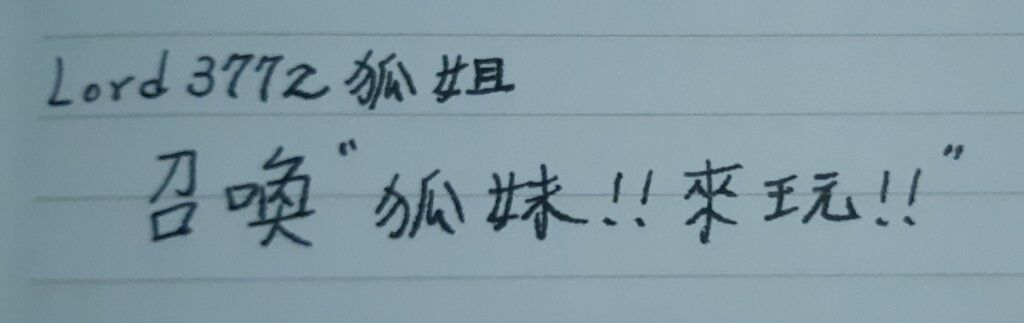 Lord 3772 狐姐
召喚"狐妹!!來玩!!"